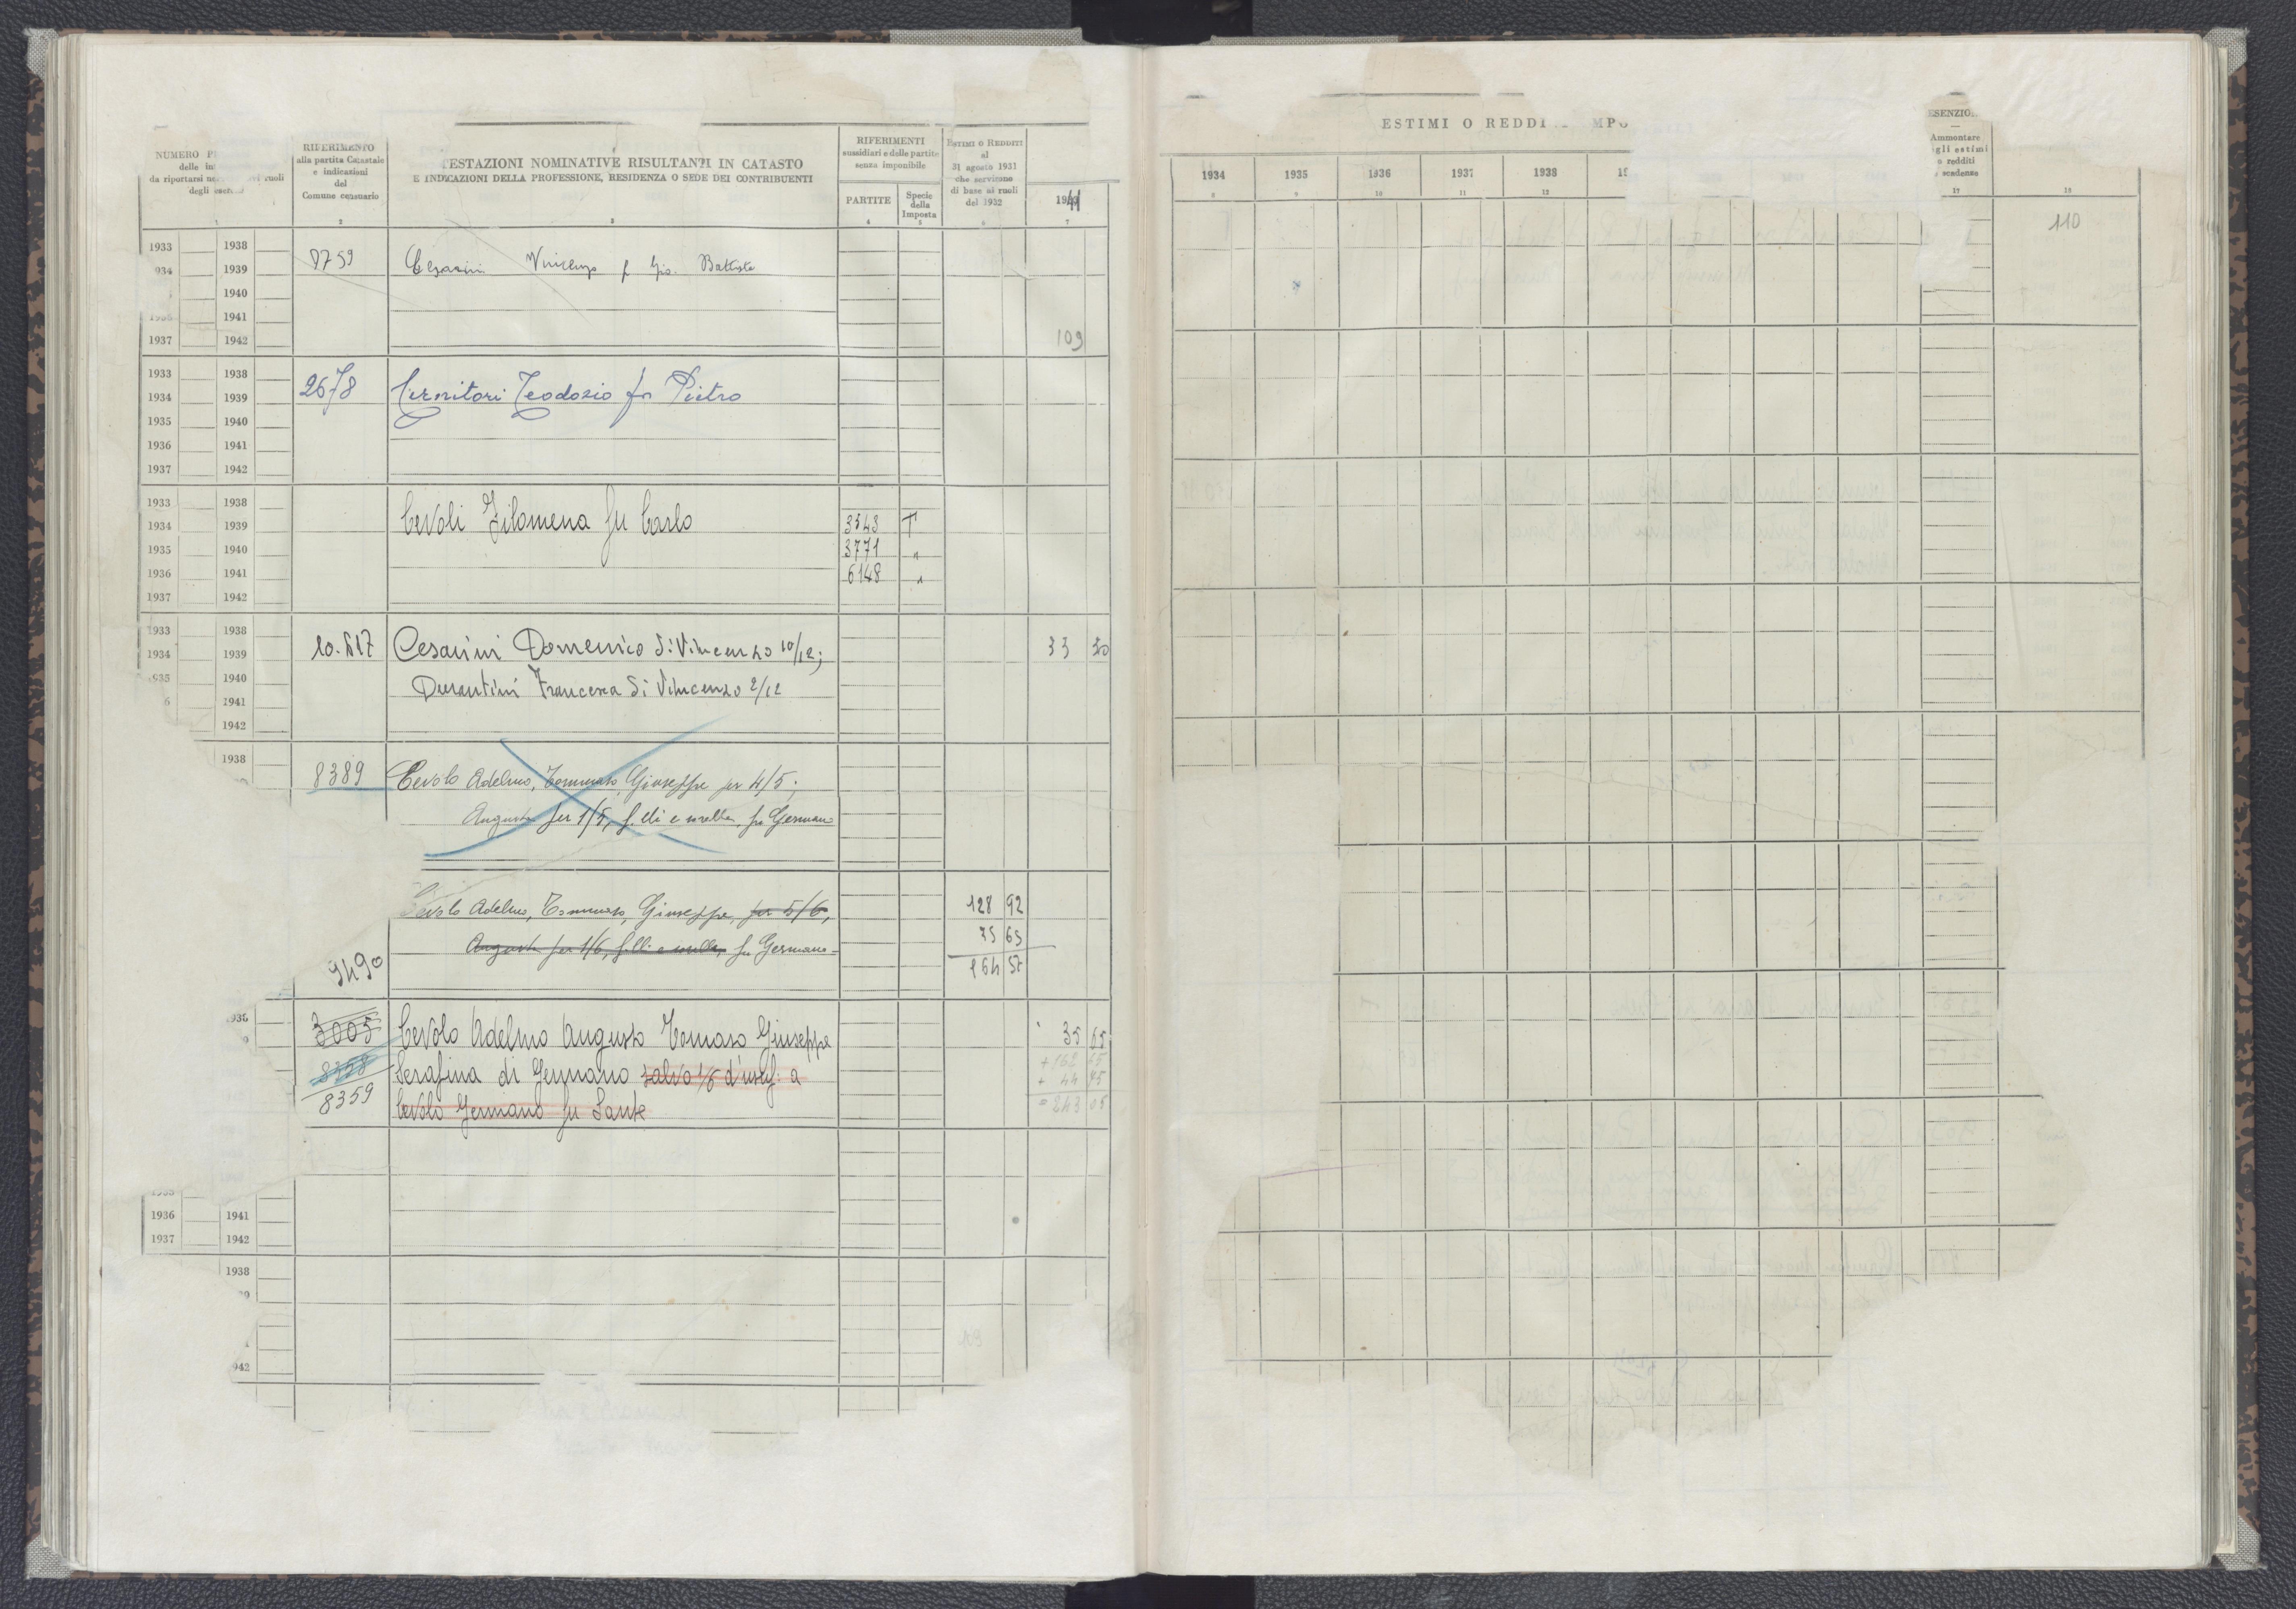 NUMERO
delle
da riportarsi ruoli
degli
1
RIFERIMENTO
alla partita Catastale
e indicazioni
del
Comune censuario
2
TESTAZIONI NOMINATIVE RISULTANTI IN CATASTO
E INDICAZIONI DELLA PROFESSIONE, RESIDENZA O SEDE DEI CONTRIBUENTI
3
RIFERIMENTI
sussidiari e delle partite
senza imponibile
PARTITE
4
Specie
della
Imposta
5
ESTIMI O REDDITI
al
31 agosto 1931
che servirono
di base ai ruoli
del 1932
6
7
1933 1938
934 1939
1940
1941
1937 1942
Cesarini Vincenzo f Gio. Battista
109
1933 1938
1934 1939
1935 1940
1936 1941
1937 1942
2678 Cernitori Teodosio fu Pietro
1933 1938
1934 1939
1935 1940
1936 1941
1937 1942
Cevoli Filomena fu Carlo
3543 T
3771 "
6148 "
1933 1938
1934 1939
935 1940
6 1941
1942
Cesarini Domenico di Vincenzo 10/12; 33 30
Durantini Francesca di Vincenzo 2/12
1938
8389 Cevolo Adelmo, Tommaso, Giuseppe per 4/5;
Augusta per 1/5, f.lli e sorella, fu Germano
Cevolo Adelmo, Tommaso, Giuseppe, per 5/6, 128 92
Augusta per 1/6, f.lli e sorella, fu Germano 65
9490 57
936
3005 Cevolo Adelmo Augusto Tomaso Giuseppe 35 65
8358 Serafina di Germano salvo 1/6 d'usuf. a
8359 Cevolo Germano fu Sante
+ 162
+ 44
= 243 05
1936 1941
1937 1942
1938
942
109
ESTIMI O REDDI MPO
1934
8
1935
9
1936
10
1937
11
1938
12
ESENZIO
Ammontare
gli estimi
o redditi
scadenza
17
18
110